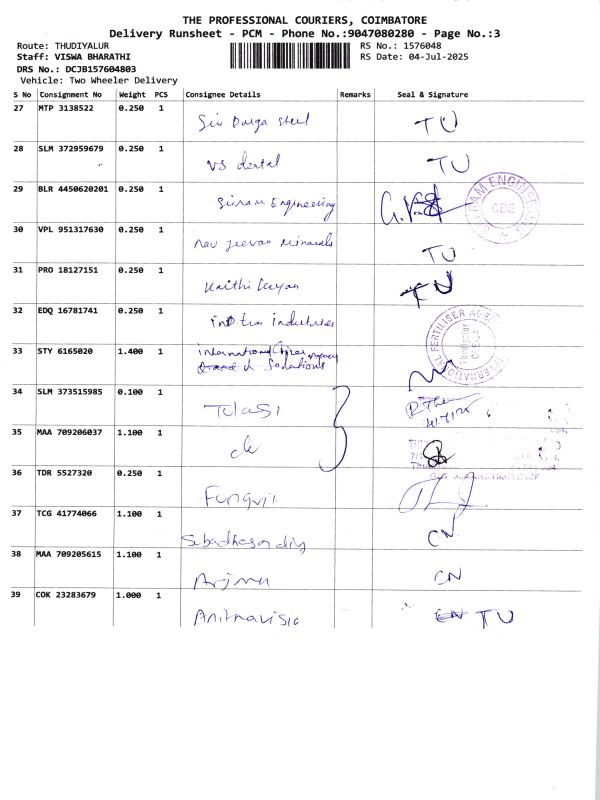 THE PROFESSIONAL COURIERS, COIMBATORE
Delivery Runsheet - PCM - Phone No.:9047080280 - Page No.:3
Route: THUDIYALUR
RS No.: 1576048
Staff: VISWA BHARATHI
RS Date: 04-Jul-2025
DRS No.: DCJB157604803
Vehicle: Two Wheeler Delivery
S No Consignment No Weight PCS Consignee Details Remarks Seal & Signature
27 MTP 3138522 0.250 1
Sri Durga Steel TU
28 SLM 372959679 0.250 1
VS dental TU
29 BLR 4450620201 0.250 1
Sriram Engineering
SRIRAM ENGINEERING
CBE
30 VPL 951317630 0.250 1
nav jeevan minerals TU
31 PRO 18127151 0.250 1
Kaithi TU
32 EDQ 16781741 0.250 1
industries
INTERNATIONAL FERTILISER
33 STY 6165020 1.400 1
International
34 SLM 373515985 0.100 1
Tulasi
4/7/25
35 MAA 709206037 1.100 1
36 TDR 5527320 0.250 1
37 TCG 41774066 1.100 1
CN
38 MAA 709205615 1.100 1
CN
39 COK 23283679 1.000 1
TU